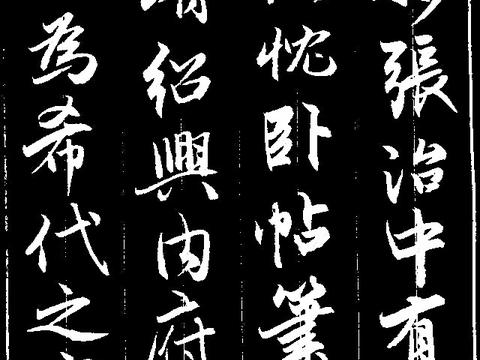 張治中有
忱卧帖筆
紹興内府
為希代之